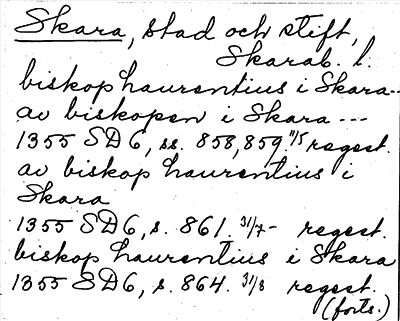 Skara, stad och stift,
Skarab. l.
biskop Laurentius i Skara--
av biskopen i Skara ---
1355 SD6, ss. 858, 859. 11/5 regest.
av biskop Laurentius i
Skara
1355 SD6, s. 861. 31/7- regest.
biskop Laurentius i Skara
1355 SD6, s. 864. 31/8 regest.
(forts.)